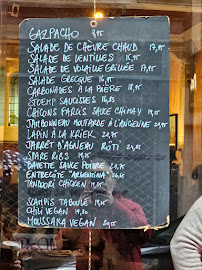 GAZPACHO 8,95
SALADE DE CHÈVRE CHAUD 17,95
SALADE DE LENTILLES 16,95
SALADE DE VOLAILLE GRILLÉE 17,95
SALADE GRECQUE 16,95
CARBONADES À LA BIÈRE 18,95
STOEMP SAUCISSES 16,95
CHICONS FARCIS SAUCE CHIMAY 19,95
JAMBONNEAU MOUTARDE À L'ANCIENNE 22,95
LAPIN À LA KRIEK 20,95
JARRET D'AGNEAU RÔTI 24,95
SPARE RIBS 19,95
BAVETTE SAUCE POIVRE 21,90
ENTRECÔTE "ARGENTINA"
TANDOORI CHICKEN 19,95
SCAMPIS TABOULÉ
CHILI VEGAN 17,80
MOUSSAKA VEGAN 20,95